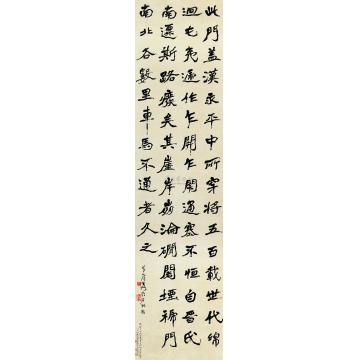 此門蓋漢永平中所穿將五百載世代綿
迴屯夷遞作乍開乍閉通塞不恒自晉氏
南遷斯路廢矣其崖岸崩淪磵閣堙褫門
南北各數里車馬不通者久之